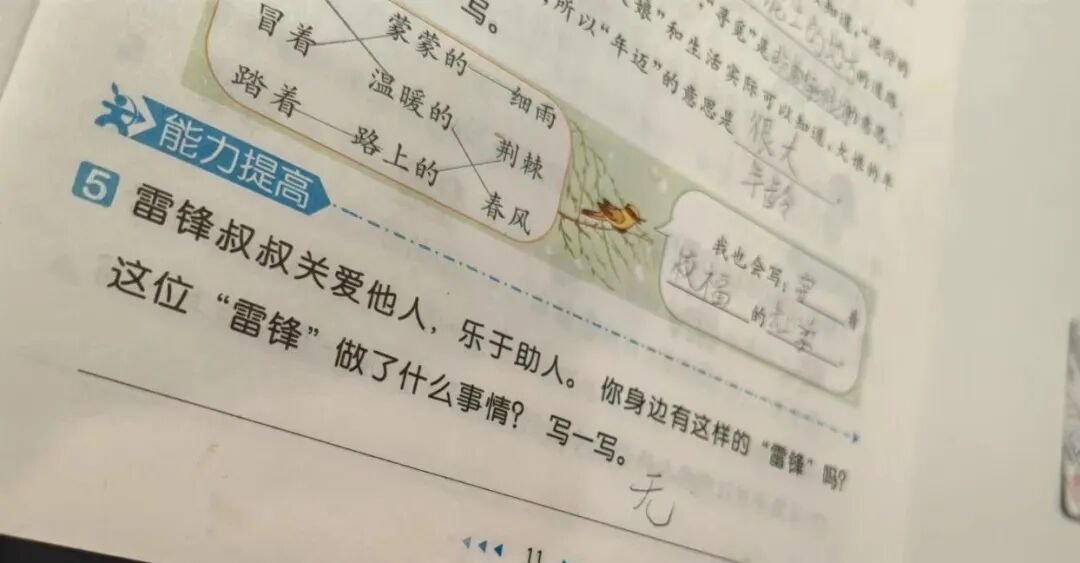 写。
冒着 蒙蒙的 细雨
踏着 温暖的 荆棘
路上的 春风
所以“年迈”的意思是很大
年龄
和生活实际可以知道,大娘的年
“寻觅”是
我也会写:
着
福的
能力提高
5 雷锋叔叔关爱他人,乐于助人。你身边有这样的“雷锋”吗?
这位“雷锋”做了什么事情?写一写。
无
11